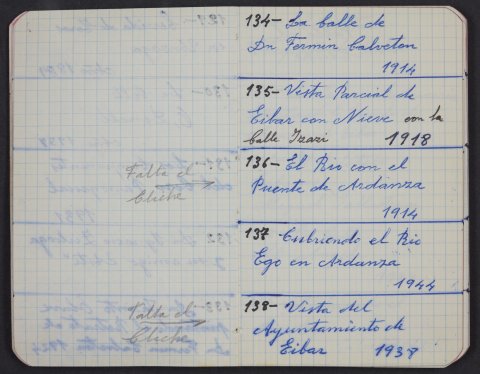 Falta el
Cliche
Falta el
Cliche
134- La Calle de
Dn Fermin Calveton
1914
135- Vista Parcial de
Eibar con Nieve con la
Calle Izazi 1918
136- El Rio con el
Puente de Ardanza
1914
137- Cubriendo el Rio
Ego en Ardanza
1944
138- Vista del
Ayuntamiento de
Eibar 1938